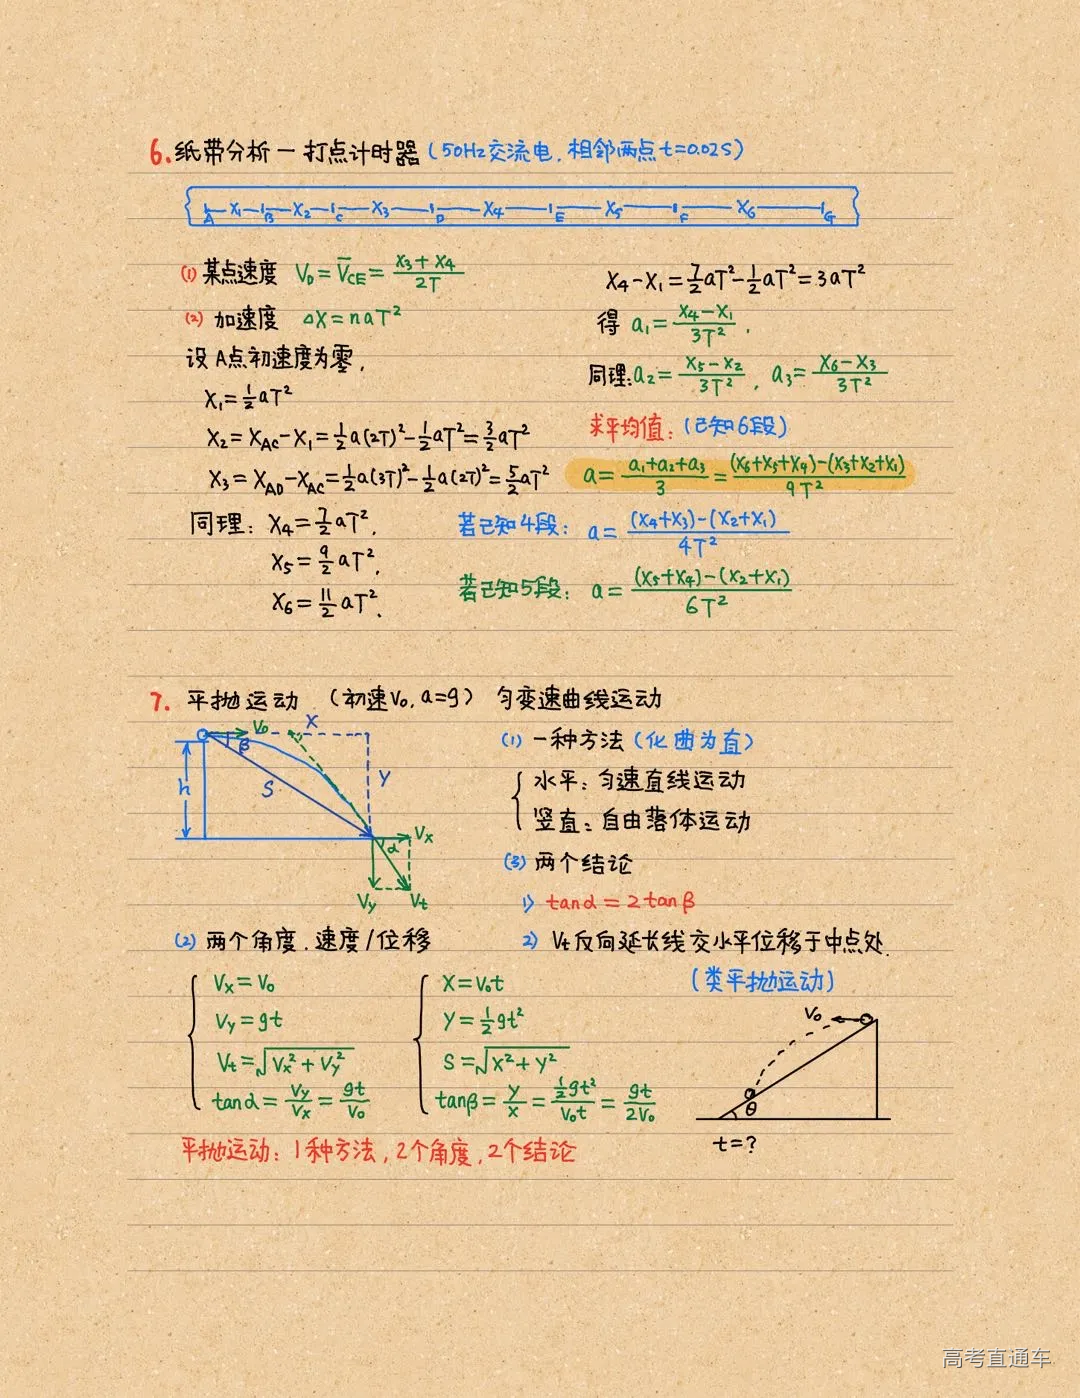 6. 纸带分析 — 打点计时器 (50Hz交流电, 相邻两点 t=0.02S)
A X₁ B X₂ C X₃ D X₄ E X₅ F X₆ G
(1) 某点速度 V_D = V̅_CE = (X₃+X₄)/2T
(2) 加速度 ΔX = naT²
设 A点初速度为零,
X₁ = ½aT²
X₂ = X_AC - X₁ = ½a(2T)² - ½aT² = 3/2 aT²
X₃ = X_AD - X_AC = ½a(3T)² - ½a(2T)² = 5/2 aT²
同理: X₄ = 7/2 aT²,
X₅ = 9/2 aT²,
X₆ = 11/2 aT².
X₄ - X₁ = 7/2 aT² - ½aT² = 3aT²
得 a₁ = (X₄-X₁)/3T² ,
同理: a₂ = (X₅-X₂)/3T² , a₃ = (X₆-X₃)/3T²
求平均值: (已知6段)
a = (a₁+a₂+a₃)/3 = ((X₆+X₅+X₄)-(X₃+X₂+X₁))/9T²
若已知4段: a = ((X₄+X₃)-(X₂+X₁))/4T²
若已知5段: a = ((X₅+X₄)-(X₂+X₁))/6T²
7. 平抛运动 (初速V₀, a=g) 匀变速曲线运动
V₀ X
β
h S Y
α Vx
Vy Vt
(1) 一种方法 (化曲为直)
水平: 匀速直线运动
竖直: 自由落体运动
(3) 两个结论
1) tanα = 2tanβ
(2) 两个角度. 速度/位移
2) Vt反向延长线交水平位移于中点处.
Vx = V₀
Vy = gt
Vt = √(Vx²+Vy²)
tanα = Vy/Vx = gt/V₀
X = V₀t
Y = ½gt²
S = √(X²+Y²)
tanβ = Y/X = ½gt²/V₀t = gt/2V₀
(类平抛运动)
V₀
θ
t=?
平抛运动: 1种方法, 2个角度, 2个结论
高考直通车